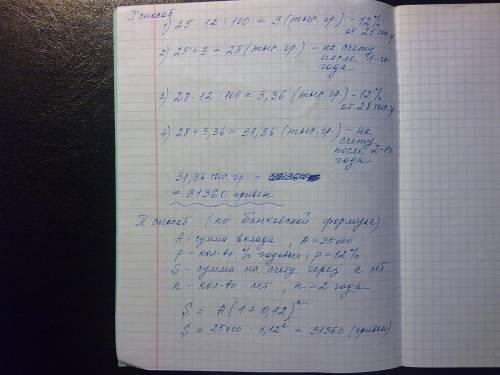 I способ
1) 25 · 12 : 100 = 3 (тыс. гр.) - 12%
от 25 тыс
2) 25 + 3 = 28 (тыс. гр.) - на счету
после 1-го
года
3) 28 · 12 : 100 = 3,36 (тыс. гр.) - 12%
от 28 тыс
4) 28 + 3,36 = 31,36 (тыс. гр.) - на
счету
после 2-го
года
31,36 тыс. гр. =
= 31360 гривен
II способ (по банковской формуле)
A - сумма вклада, A = 25000
p - кол-во % годовых, p = 12%
S - сумма на счету через n лет
n - кол-во лет, n = 2 года
S = A (1 + 0,12)ⁿ
S = 25000 · 1,12² = 31360 (гривен)